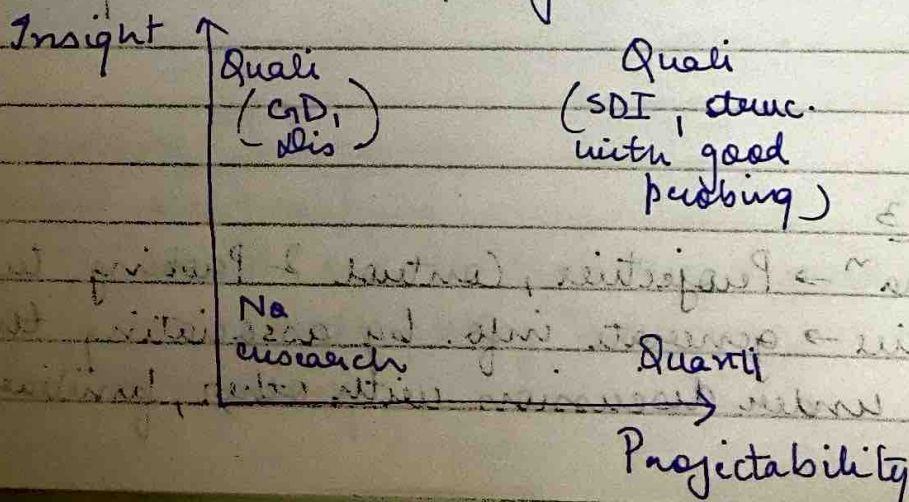 Insight
Quali
(GD,
Dis)
Quali
(SDI, struc.
with good
probing)
No
research
Quanti
Projectability